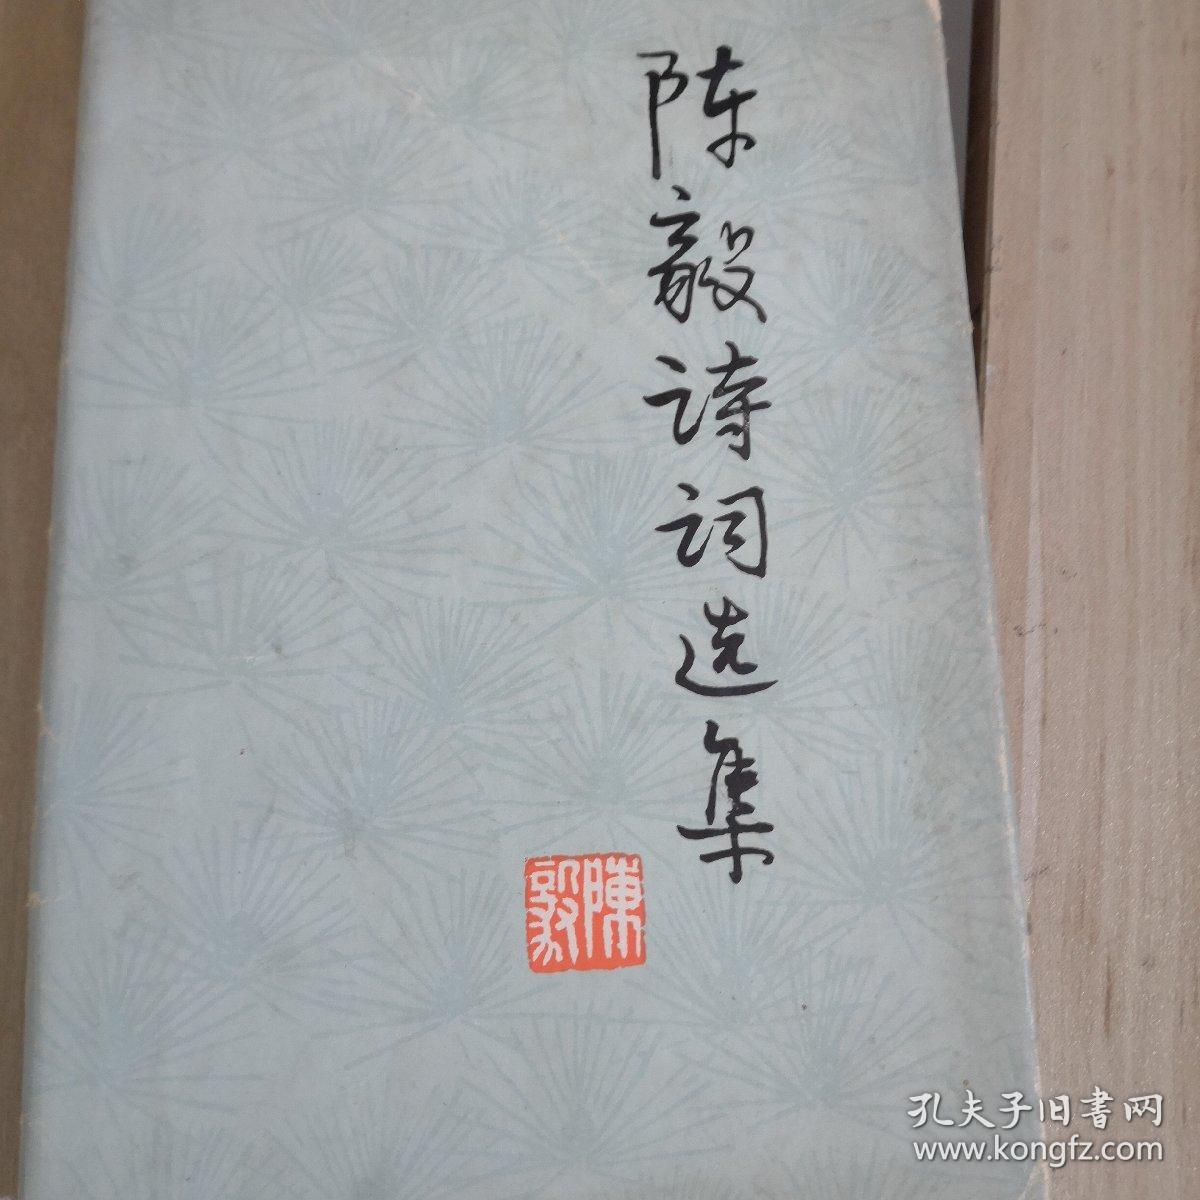 陈毅诗词选集
陳毅
孔夫子旧書网
www.kongfz.com